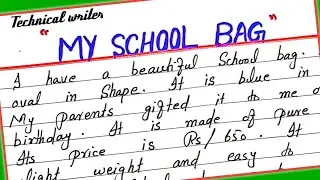 Technical writer
"MY SCHOOL BAG"
I have a beautiful School bag.
oval in Shape. It is blue in
My parents gifted it to me o
birthday. It is made of pure
Its price is Rs/650. It
light weight and easy to